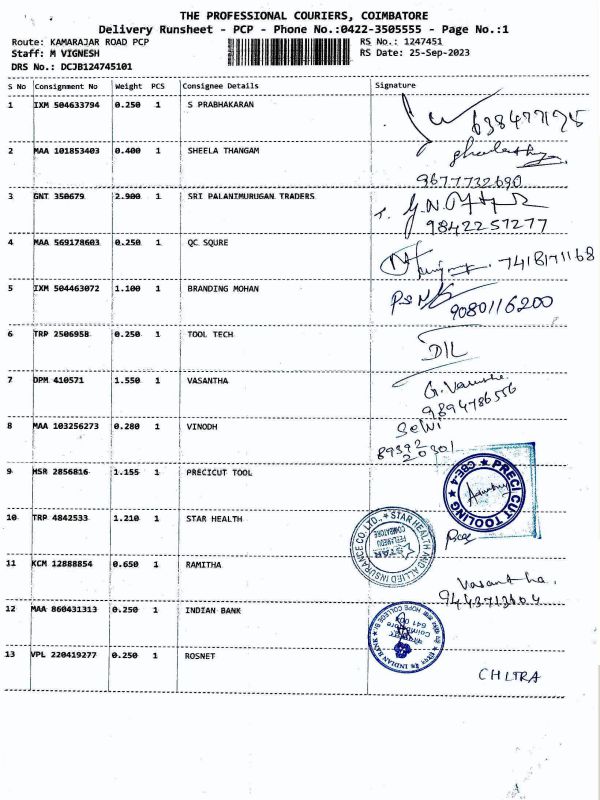 THE PROFESSIONAL COURIERS, COIMBATORE
Delivery Runsheet - PCP - Phone No.:0422-3505555 - Page No.:1
Route: KAMARAJAR ROAD PCP
RS No.: 1247451
Staff: M VIGNESH
RS Date: 25-Sep-2023
DRS No.: DCJB124745101
S No Consignment No Weight PCS Consignee Details Signature
1 IXM 504633794 0.250 1 S PRABHAKARAN
2 MAA 101853403 0.400 1 SHEELA THANGAM
9677732690
3 GNT 350679 2.900 1 SRI PALANIMURUGAN TRADERS
9842257277
4 MAA 569178603 0.250 1 QC SQURE
7418171168
5 IXM 504463072 1.100 1 BRANDING MOHAN
9080116200
6 TRP 2506958 0.250 1 TOOL TECH
7 DPM 410571 1.550 1 VASANTHA
9894786556
8 MAA 103256273 0.280 1 VINODH
Selvi
89392
20301
9 MSR 2856816 1.155 1 PRECICUT TOOL
PRECICUT TOOLING ★ CBE-4 ★
10 TRP 4842533 1.210 1 STAR HEALTH
STAR HEALTH AND ALLIED INSURANCE CO. LTD.,
STAR
COIMBATORE
11 KCM 12888854 0.650 1 RAMITHA
Vasantha.
12 MAA 860431313 0.250 1 INDIAN BANK
INDIAN BANK
HOPE COLLEGE
Coimbatore
641 004
13 VPL 220419277 0.250 1 ROSNET
CHITRA